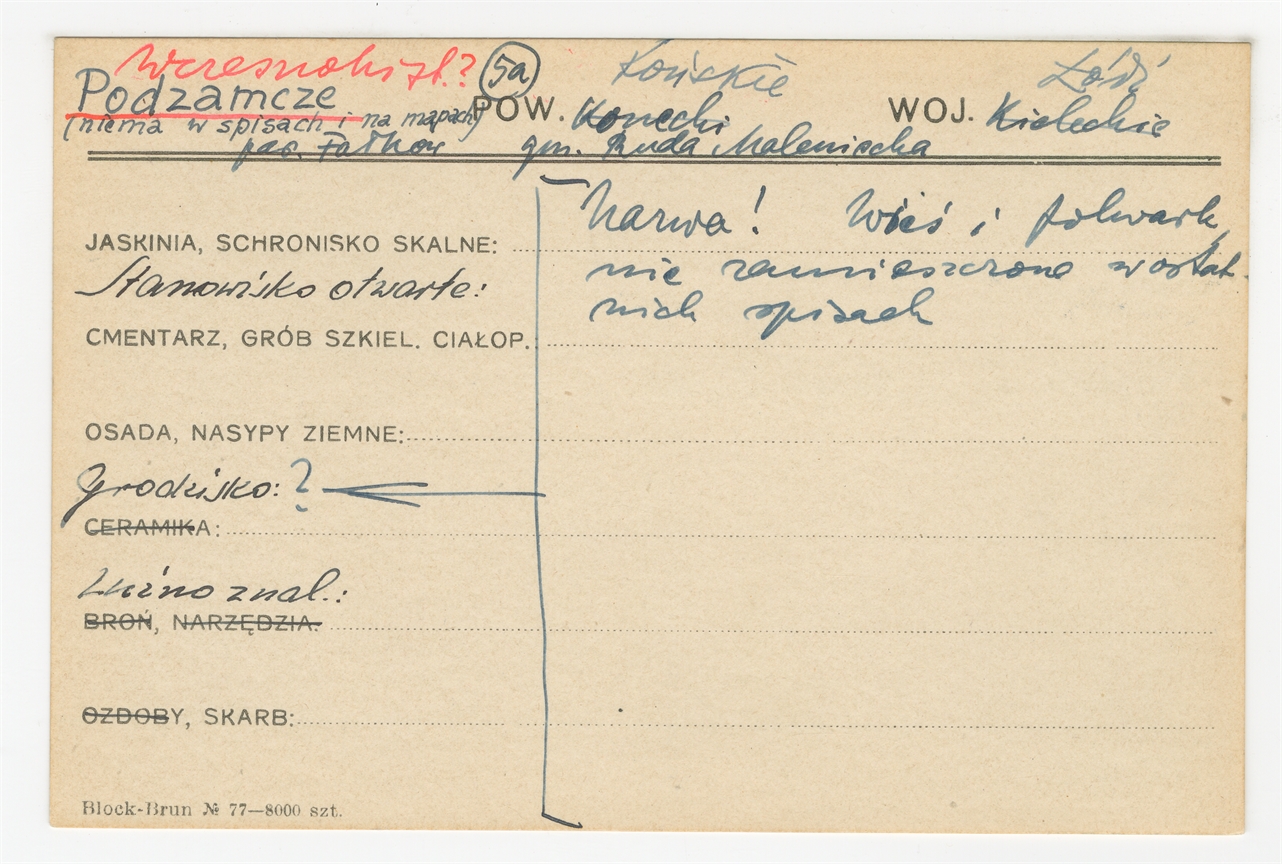 Wczesnohist.? 5a Końskie Łódź
Podzamcze POW. Konecki WOJ. Kieleckie
(niema w spisach i na mapach)
par. Fałków gm. Ruda Maleniecka
Nazwa! Wieś i folwark,
JASKINIA, SCHRONISKO SKALNE:
nie zamieszczone w ostat-
Stanowisko otwarte:
nich spisach
CMENTARZ, GRÓB SZKIEL. CIAŁOP.
OSADA, NASYPY ZIEMNE:
Grodzisko: ?
CERAMIKA:
Luźno znal.:
BROŃ, NARZĘDZIA.
OZDOBY, SKARB:
Block-Brun № 77—8000 szt.